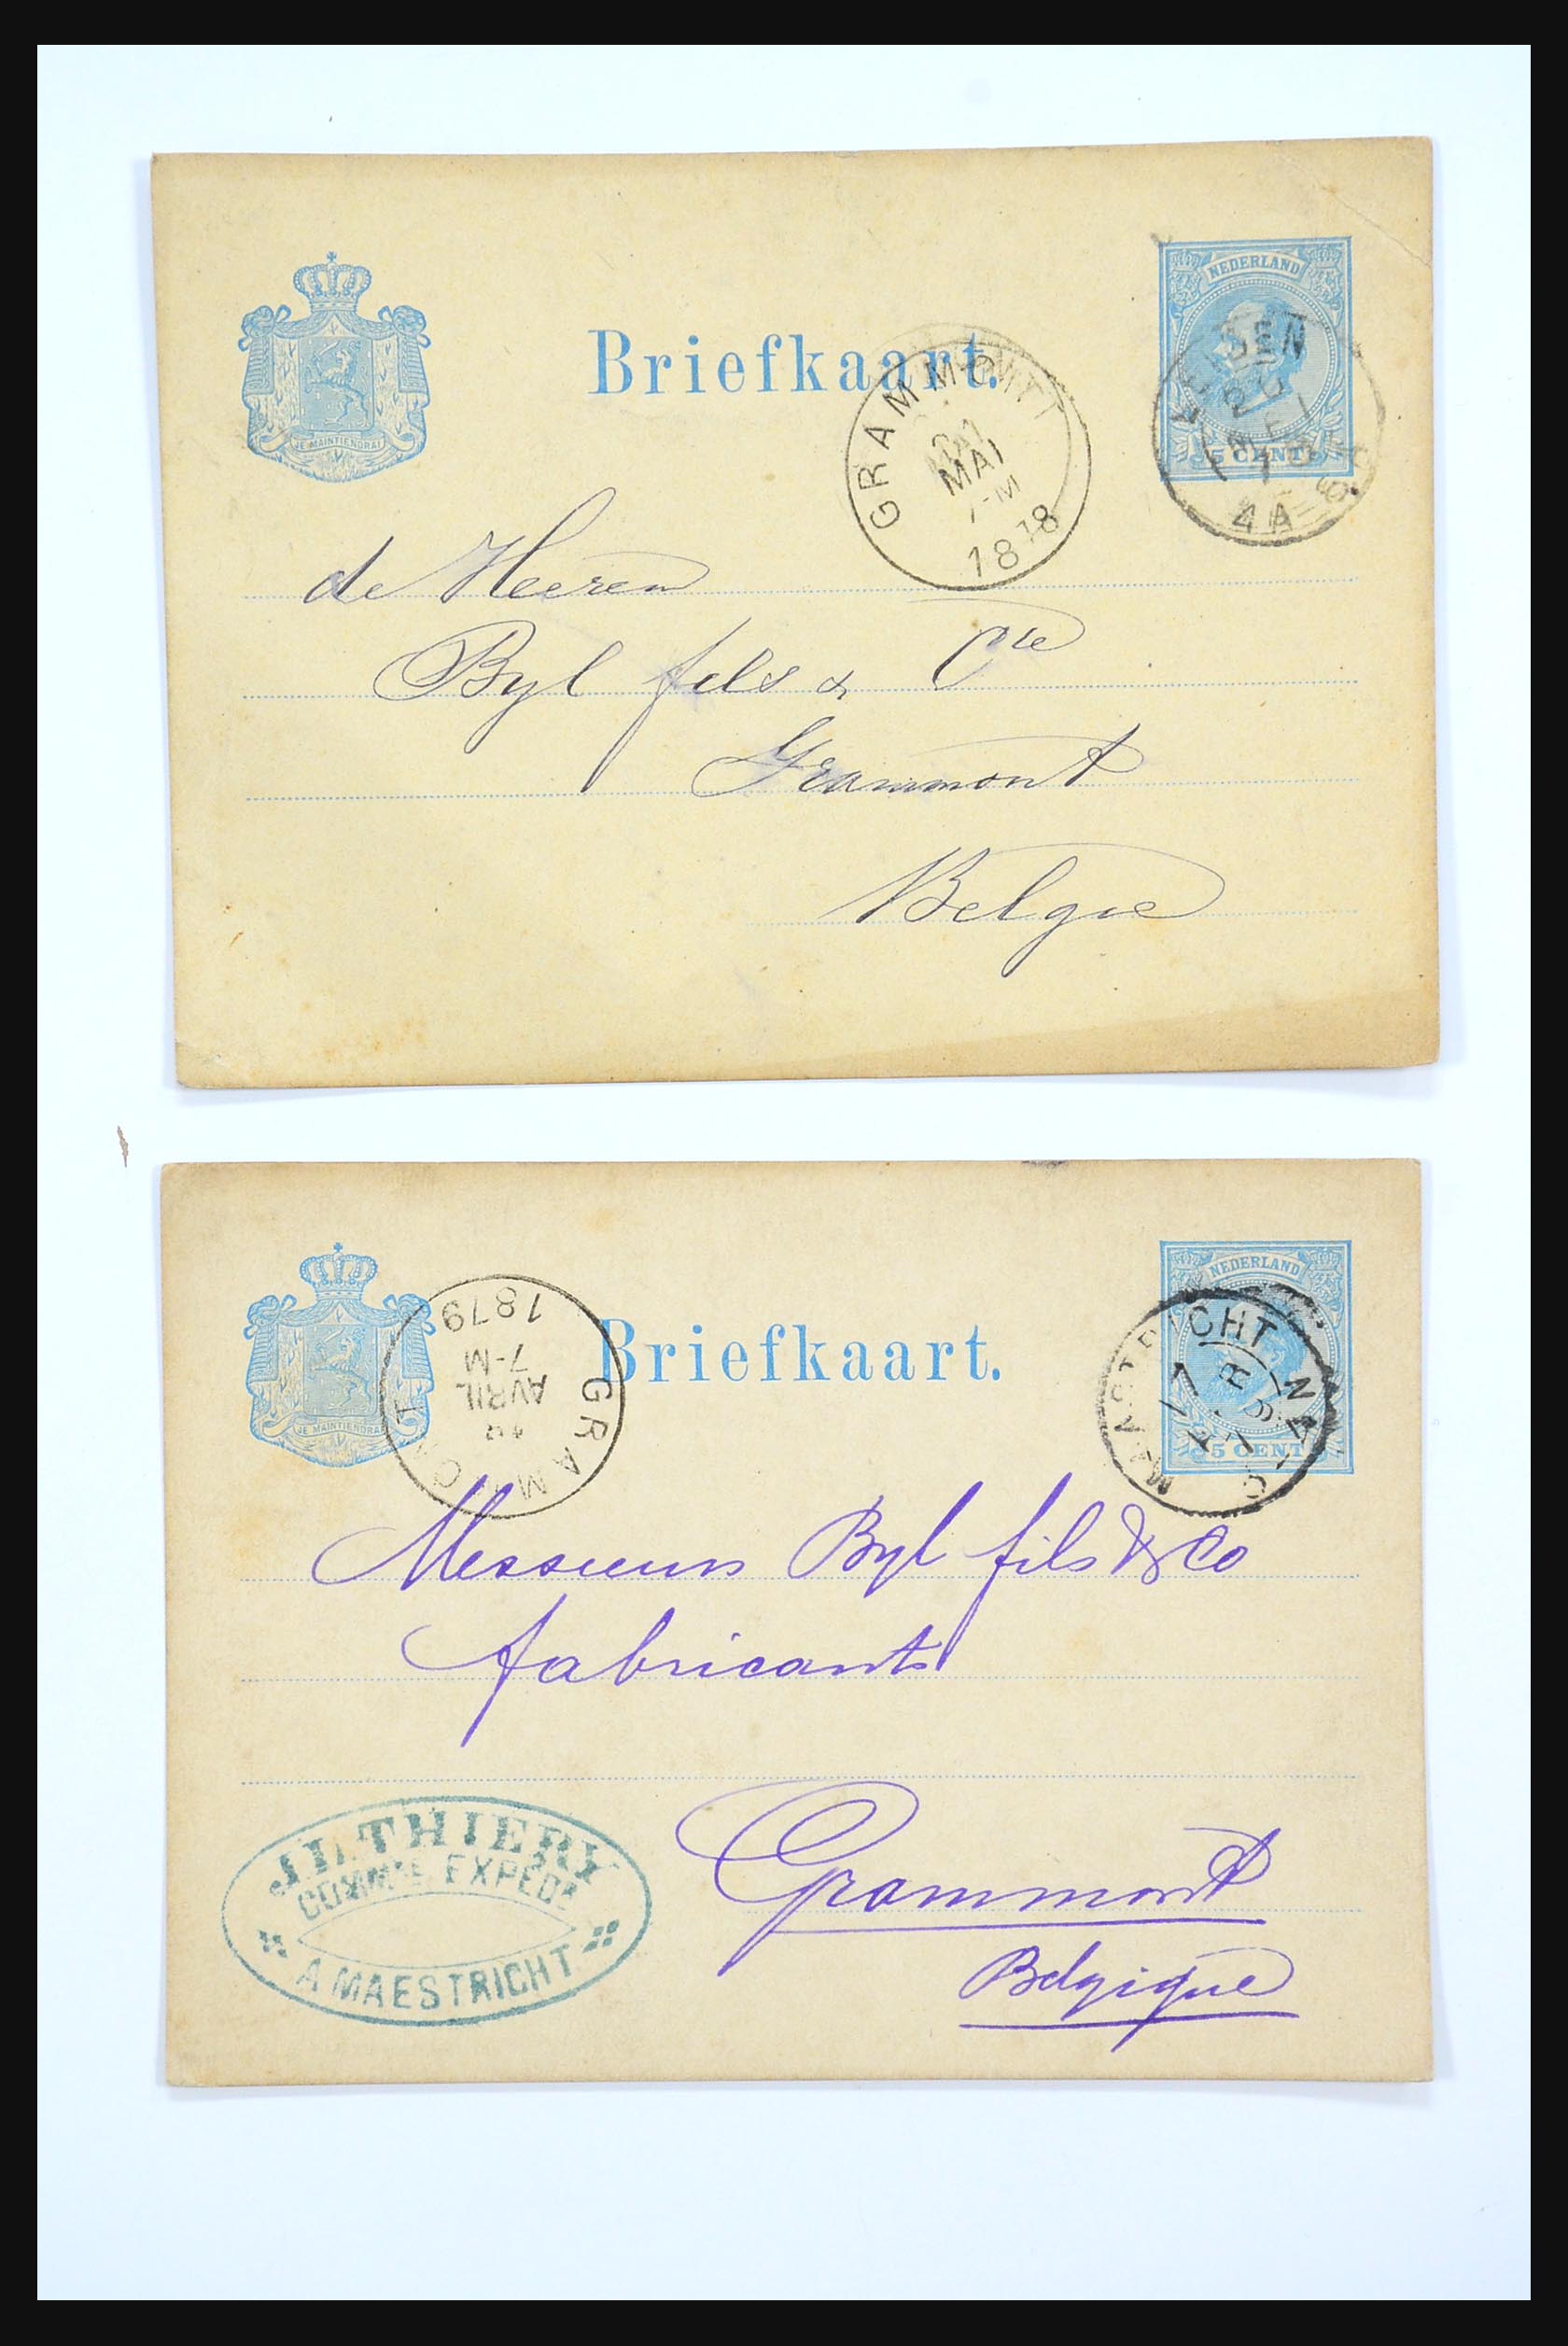 NEDERLAND
5 CENT
JE MAINTIENDRAI
Briefkaart.
GRAMMONT
MAI
1878
4A
de Heeren
Byl fils & Cie
Grammont
Belgie
NEDERLAND
5 CENT
JE MAINTIENDRAI
Briefkaart.
GRAMMONT
AVRIL
7-M
1879
MAASTRICHT
Messieurs Byl fils & Co
fabricants
Grammont
Belgique
THIERY
EXPEDR
A MAESTRICHT